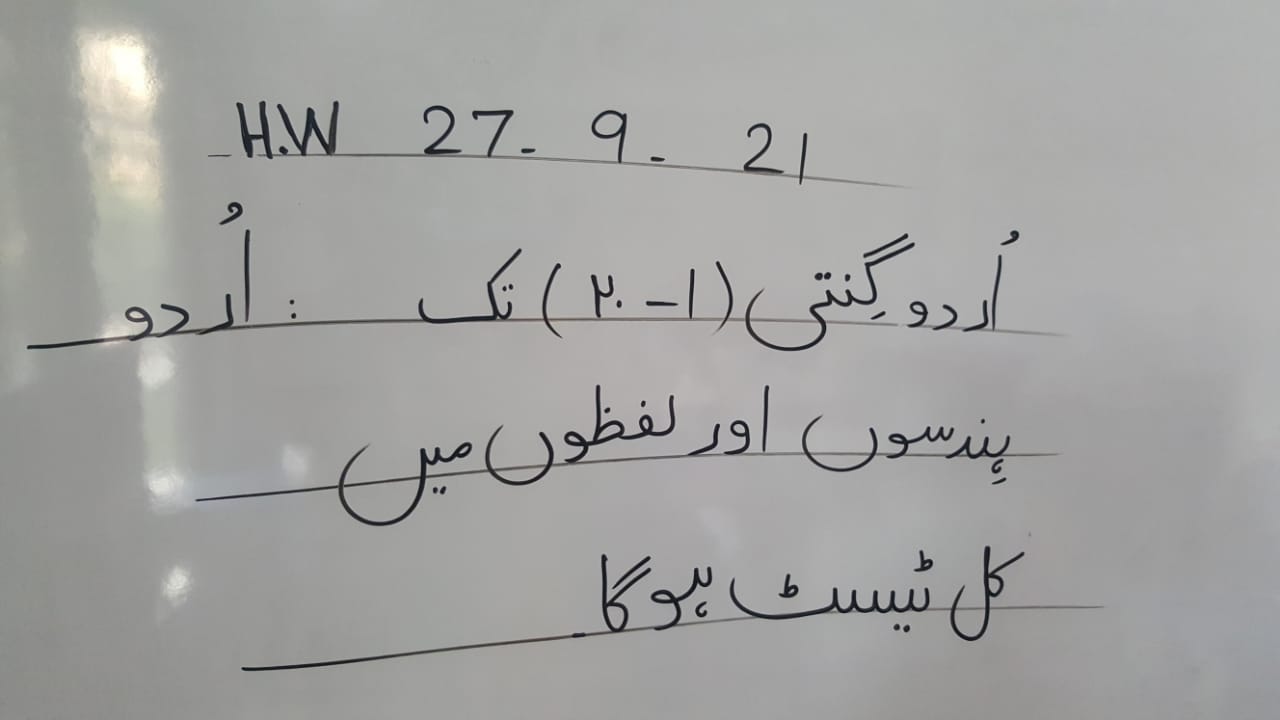 H.W 27-9-21
اُردو گِنتی (۱-۲۰) تک : اُردو
ہِندسوں اور لفظوں میں
کل ٹیسٹ ہوگا۔